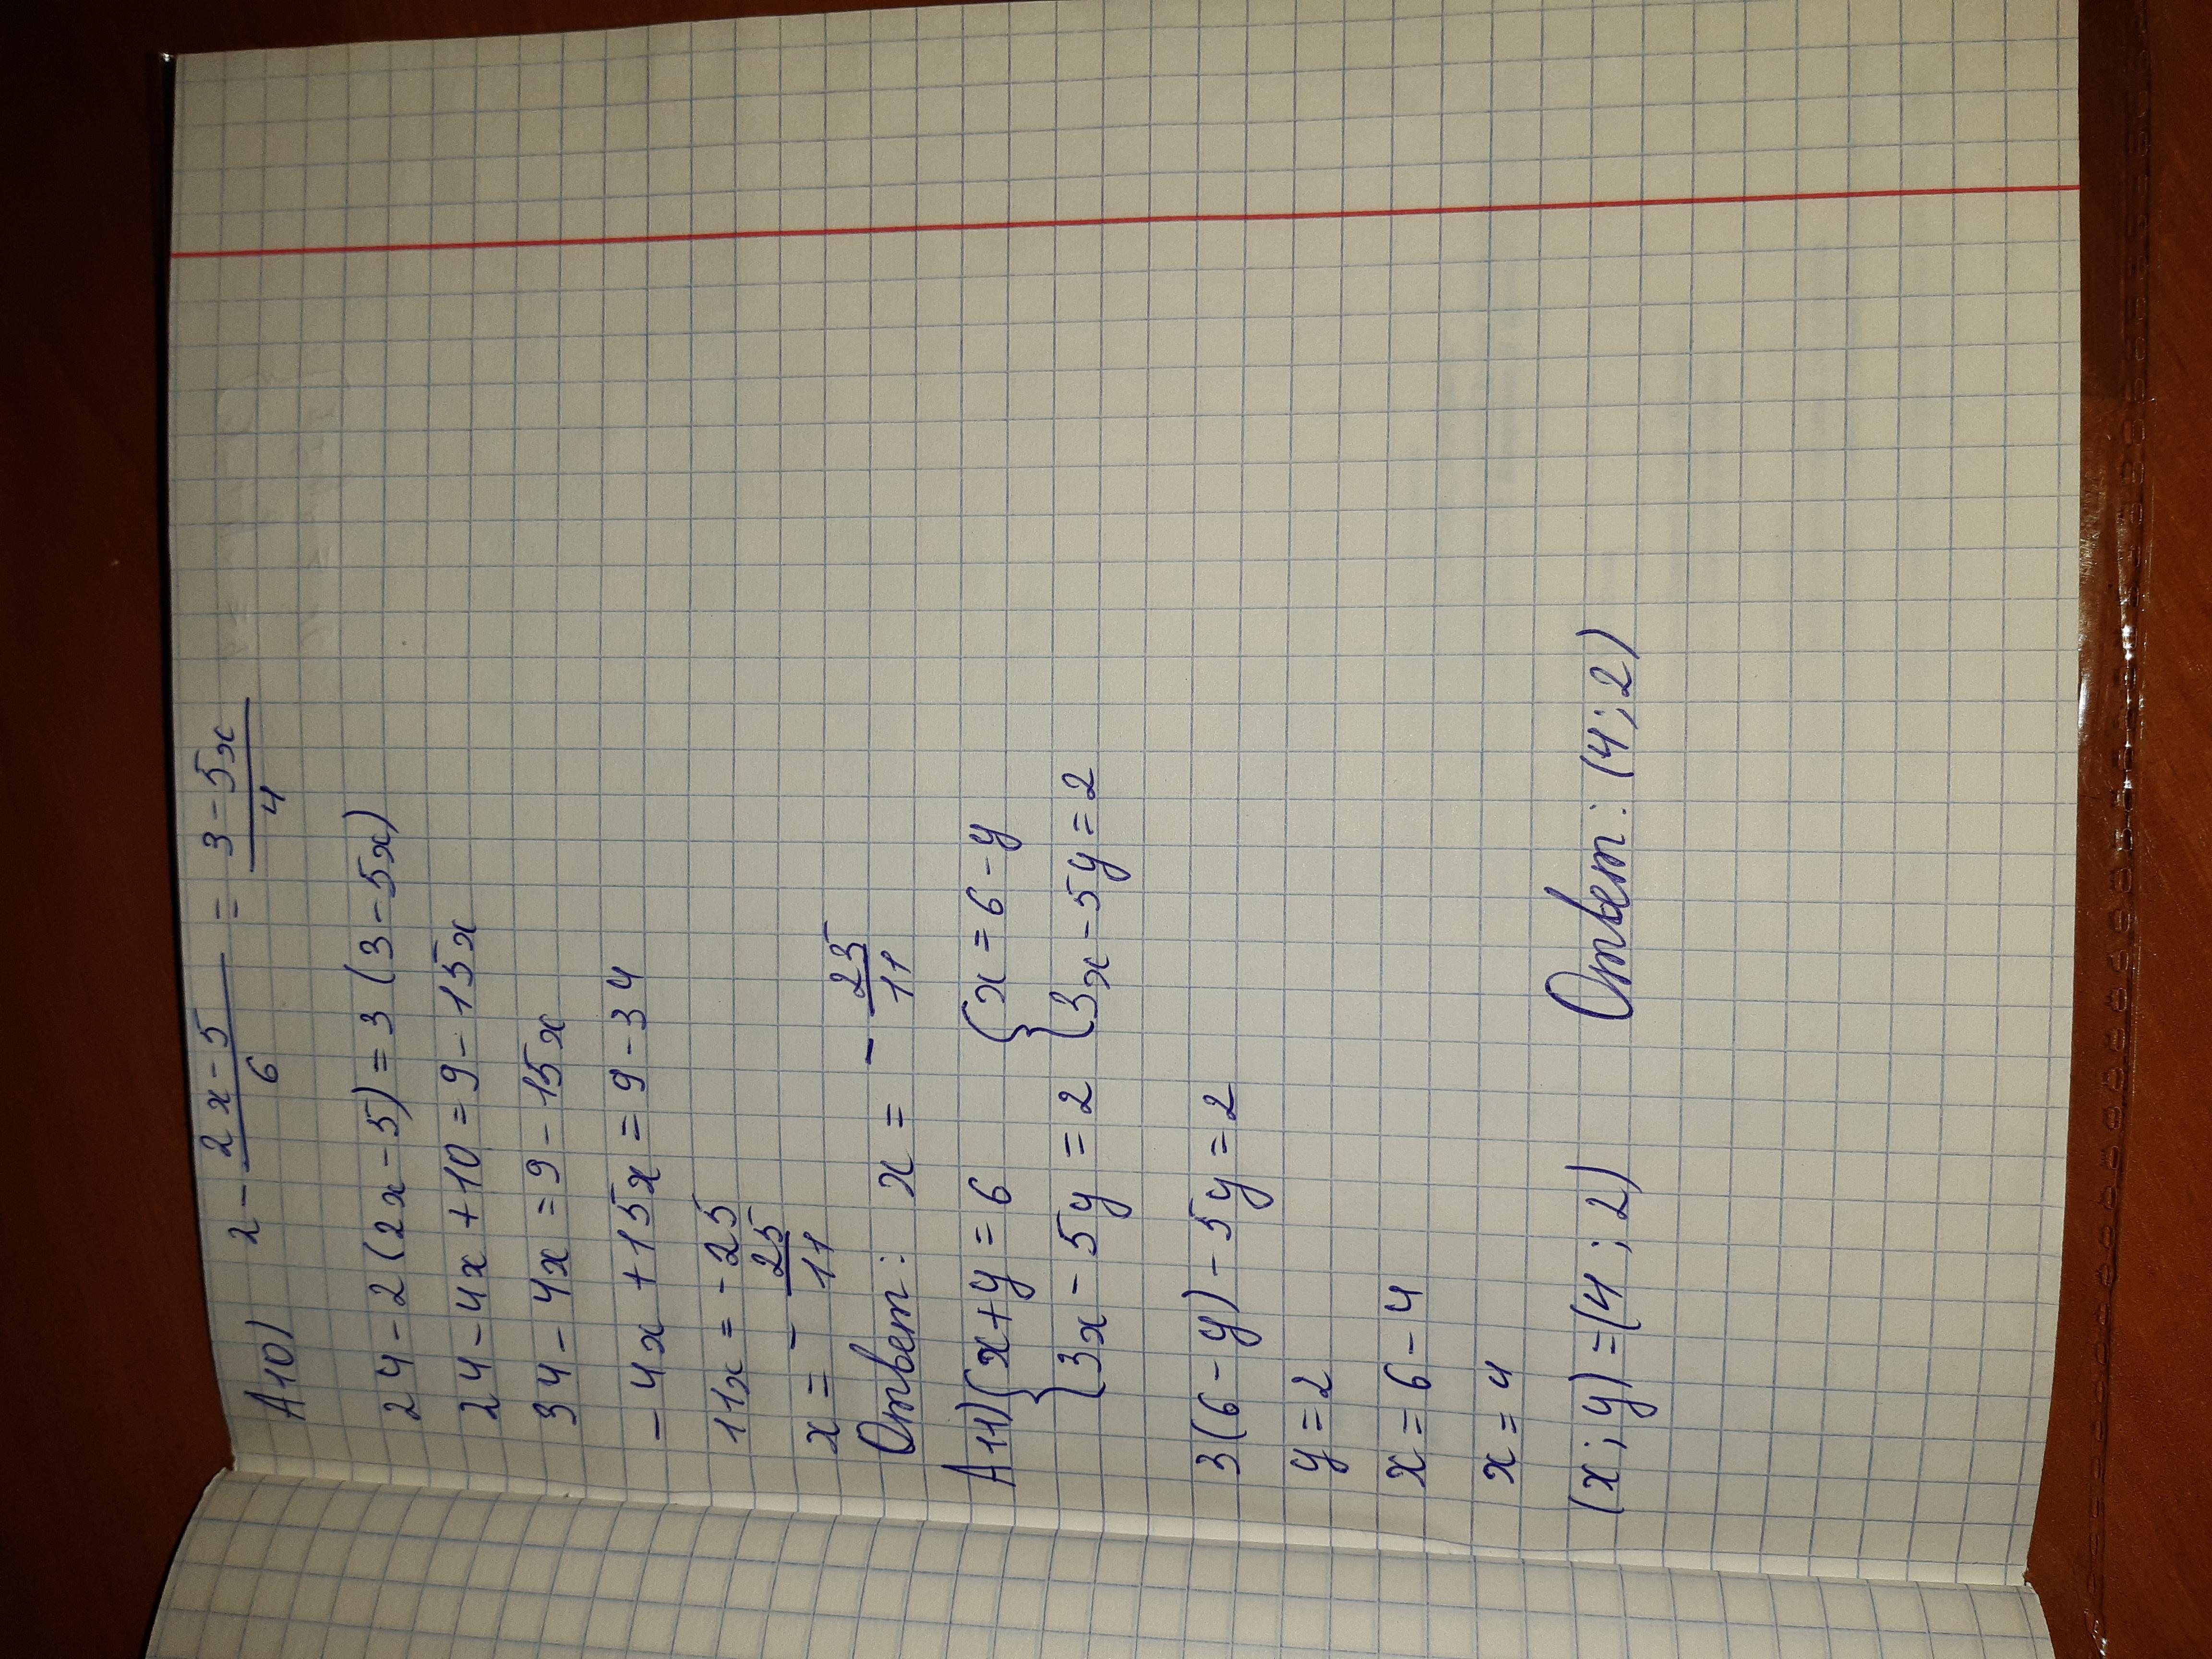 А10) 2 - (2x-5)/6 = (3-5x)/4
24-2(2x-5)=3(3-5x)
24-4x+10=9-15x
34-4x=9-15x
-4x+15x=9-34
11x=-25
x=-25/11
Ответ: x=-25/11
А11) { x+y=6 { x=6-y
{ 3x-5y=2 { 3x-5y=2
3(6-y)-5y=2
y=2
x=6-4
x=4
(x;y)=(4;2) Ответ: (4;2)